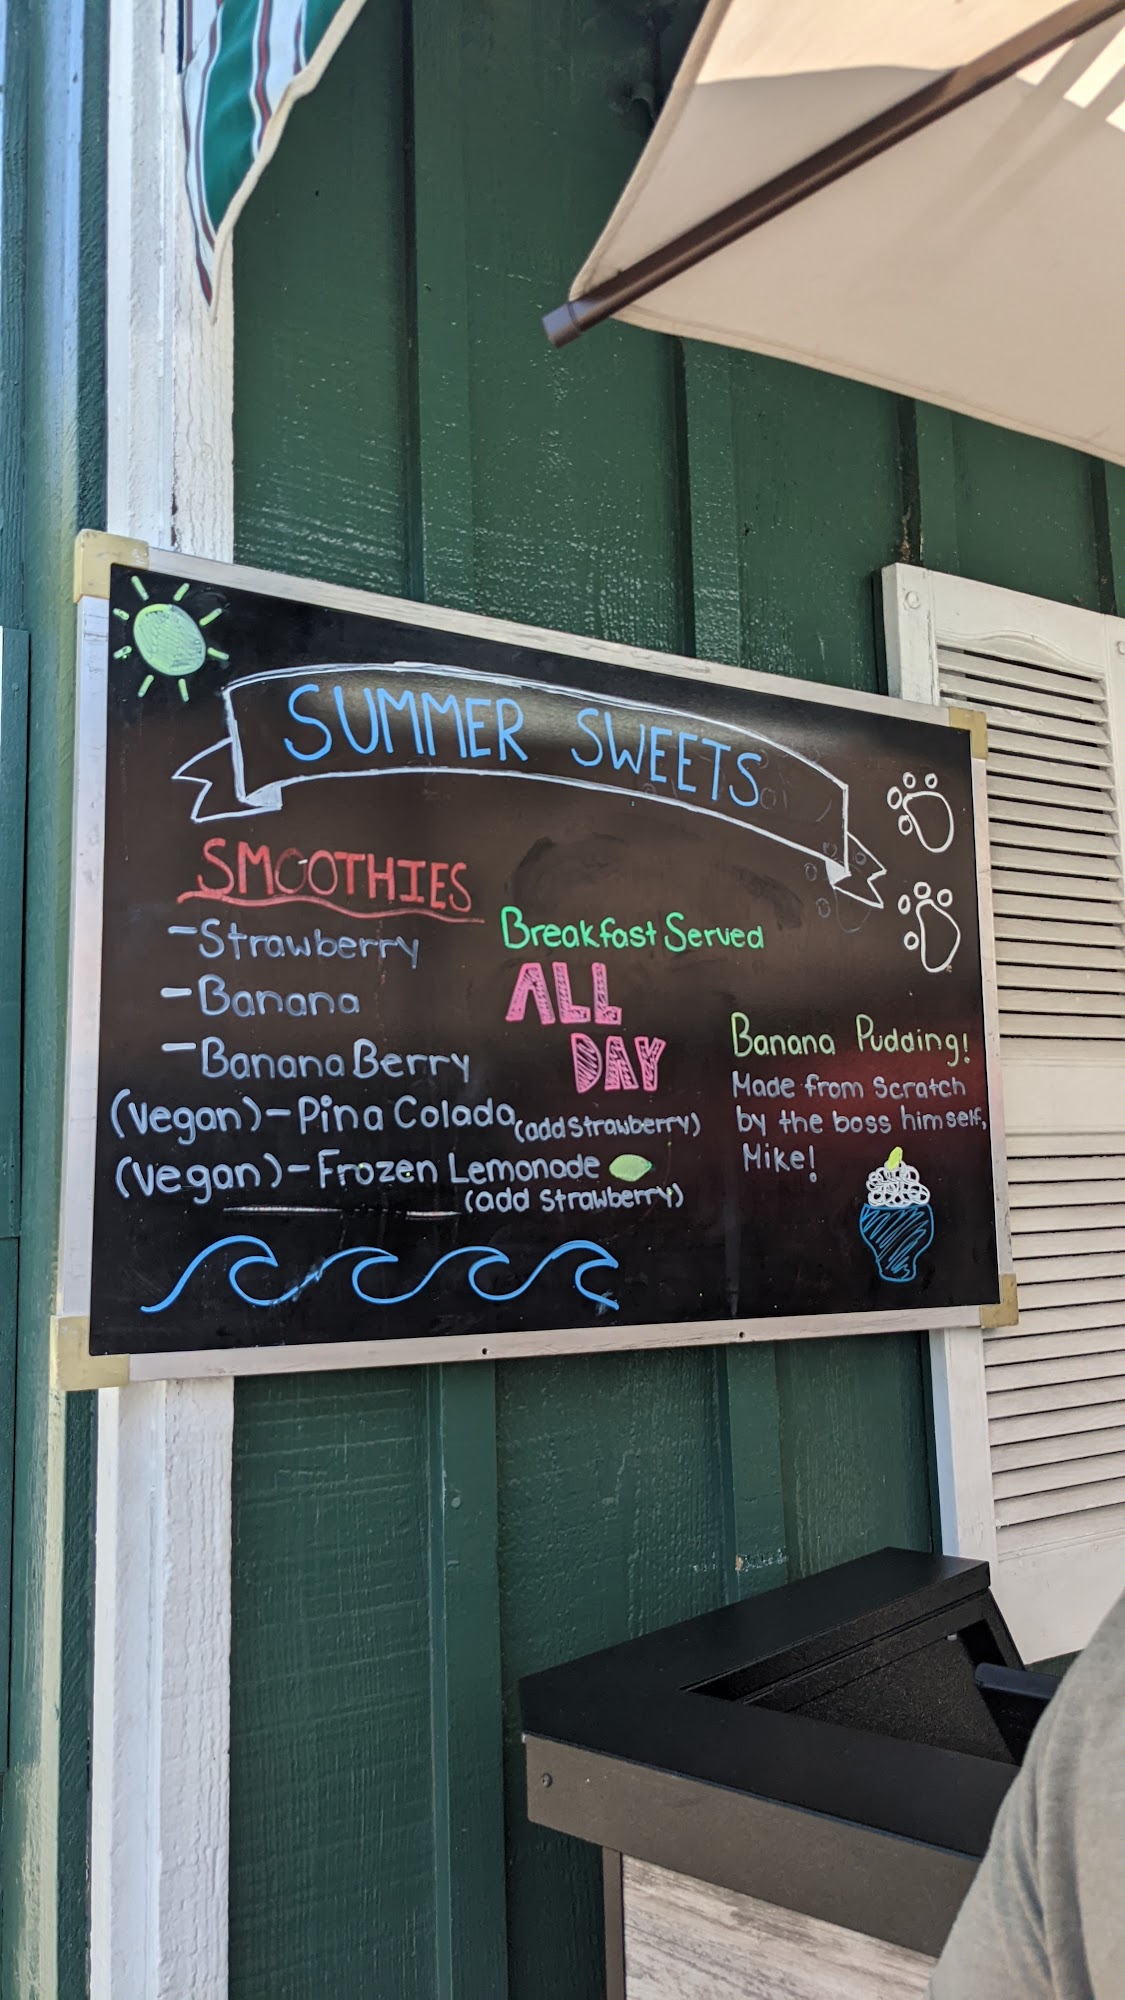 SUMMER SWEETS
SMOOTHIES
-Strawberry
-Banana
-Banana Berry
(Vegan)-Pina Colada (add strawberry)
(Vegan)-Frozen Lemonade
(add strawberry)
Breakfast Served
ALL
DAY
Banana Pudding!
Made from scratch
by the boss himself,
Mike!